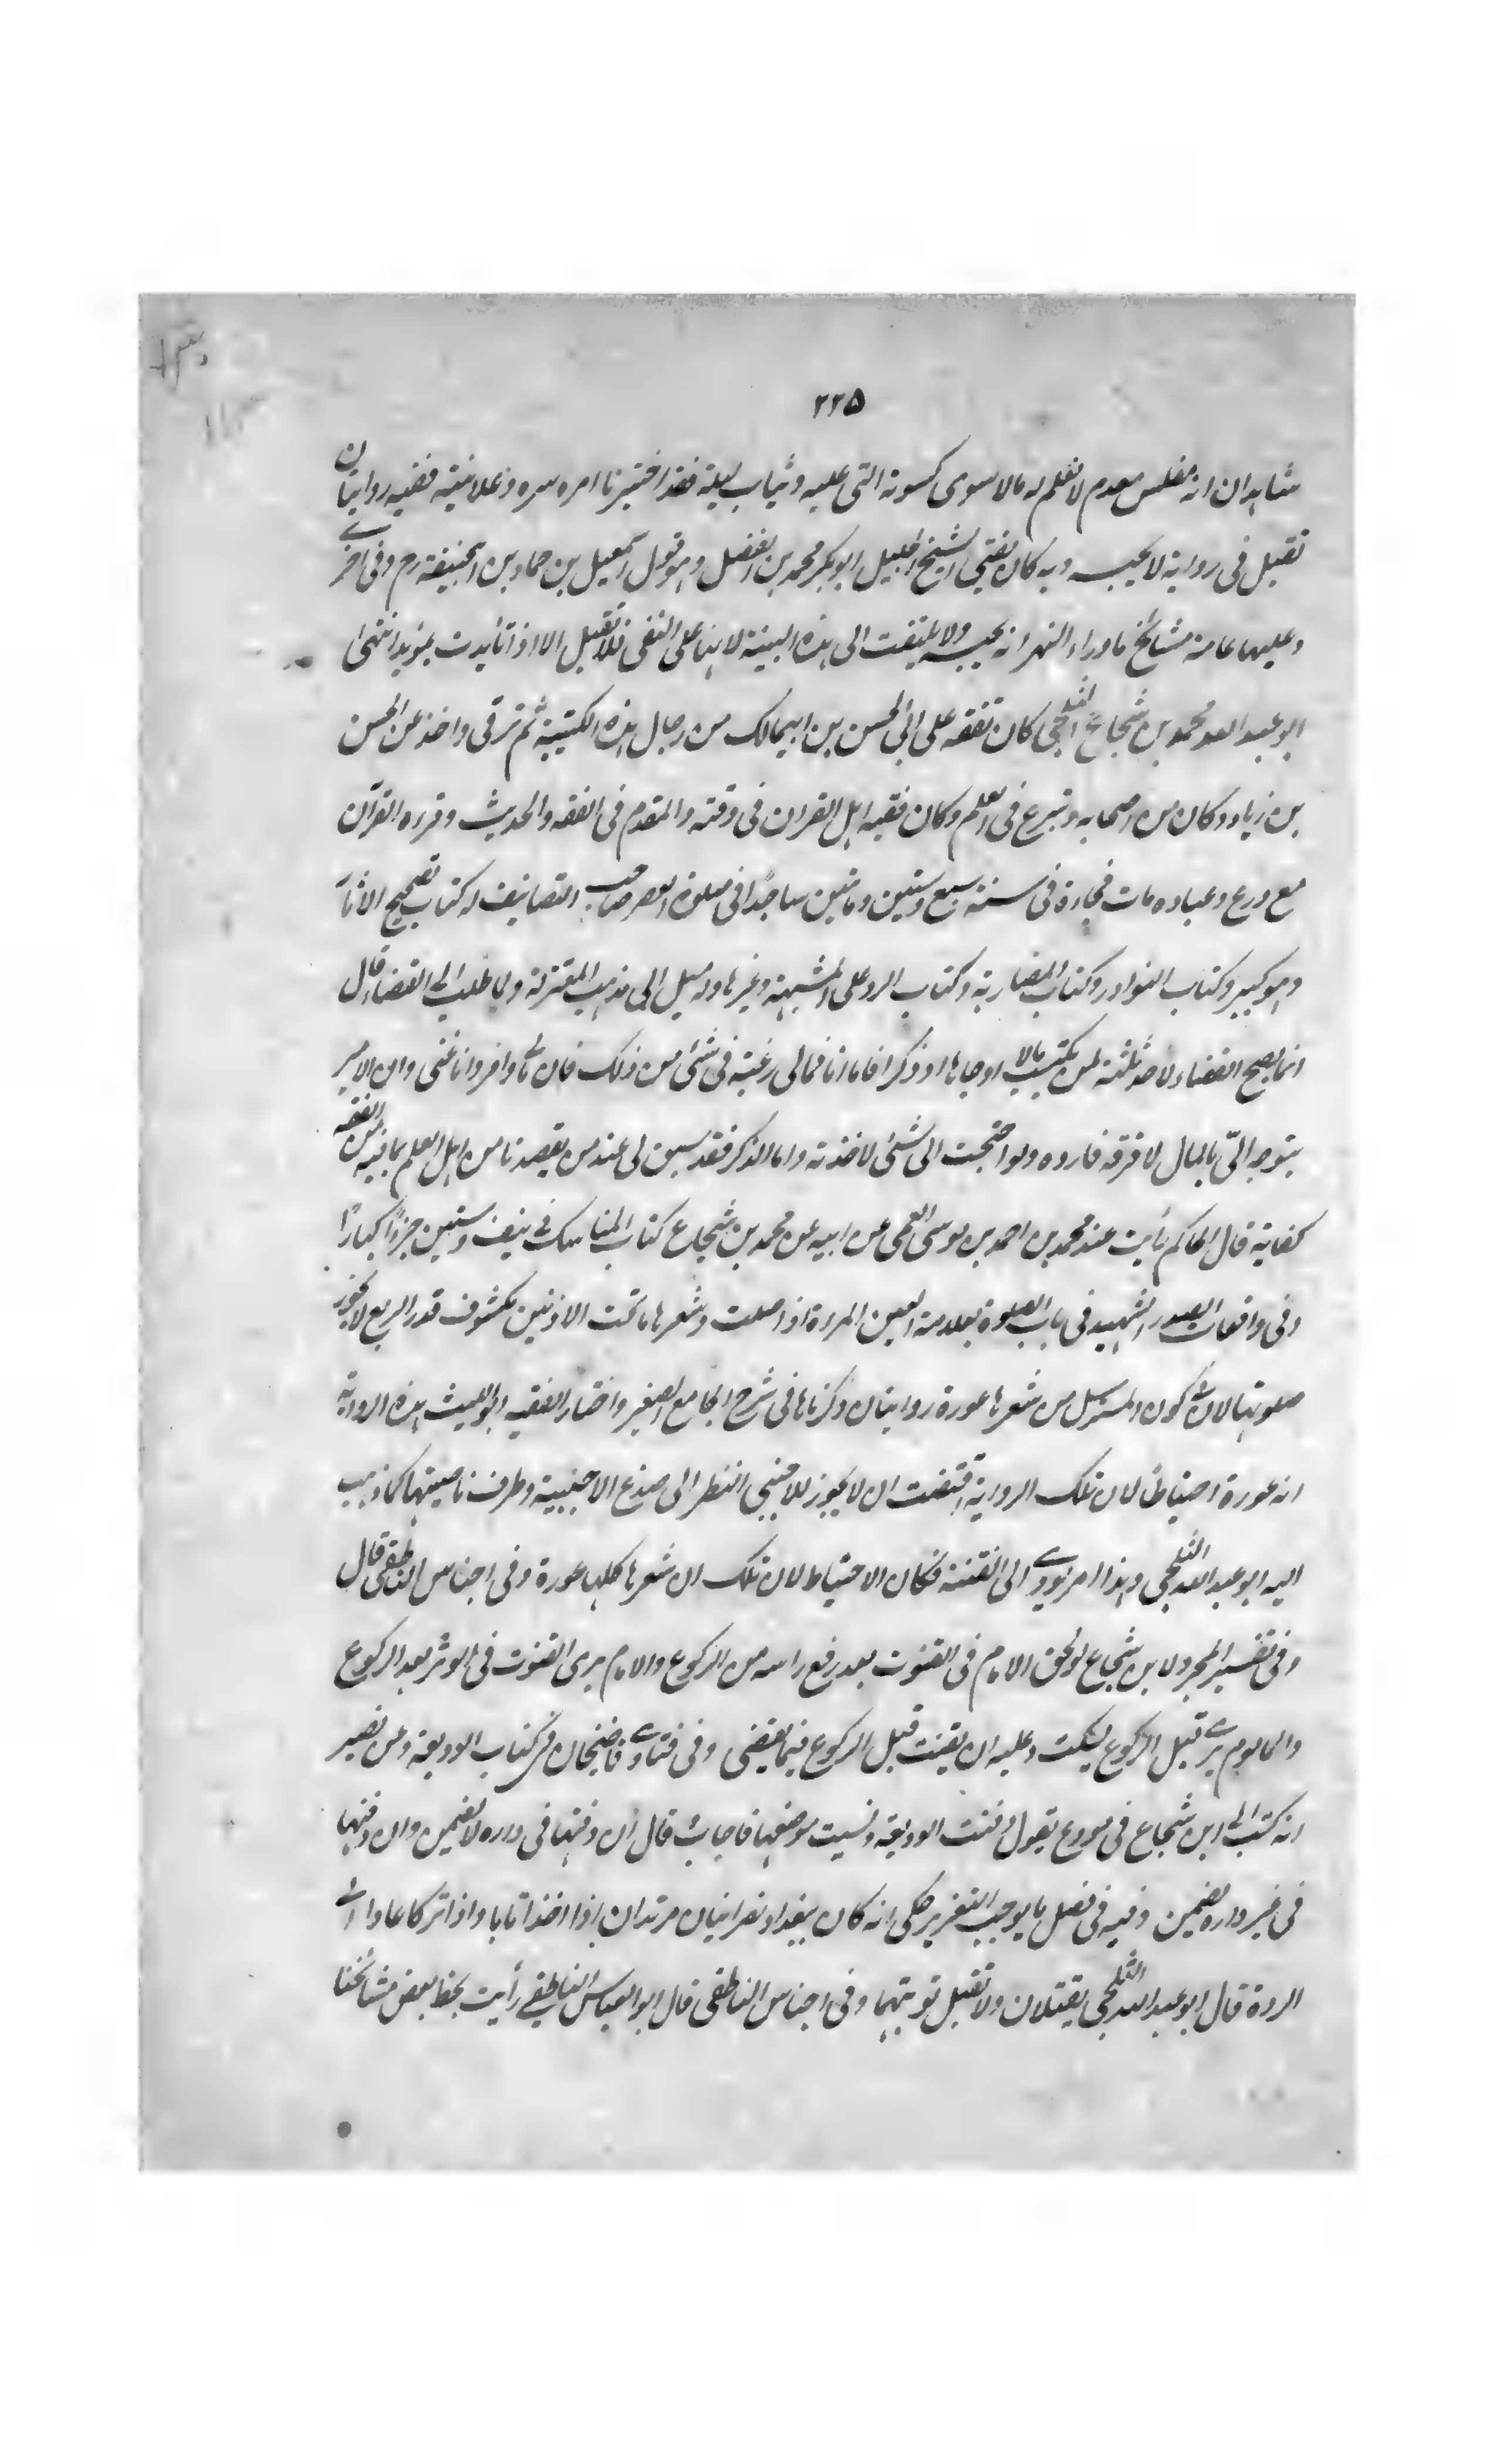 ٢٢٥
شاهدان انه مفلس معدم لا نعلم له مالا سوى كسوته التى عليه وثياب ليلة فقد اختبرنا امره سره وعلانيته ففيه روايتان
تقبل فى رواية لا يحبسه وبه كان يفتى الشيخ الجليل ابو بكر محمد بن الفضل وهو قول اسمعيل بن حماد بن ابيحنيفة رح وفى اخرى
وعليها عامة مشائخ ما وراء النهر انه يحبسه ولا يلتفت الى هذه البينة لانها على النفى فلا تقبل الا اذا تأيدت بمؤيد انتهى
ابو عبد الله محمد بن شجاع الثلجى كان تفقه على ابى الحسن بن ابيمالك من رجال هذه الكتيبة ثم ترقى واخذ عن الحسن
بن زياد وكان من اصحابه وتبرع فى العلم وكان فقيه اهل القران فى وقته والمقدم فى الفقه والحديث وقرءه القرآن
مع ورع وعباده مات فجاءة فى سنة سبع وستين ومائتين ساجدًا فى صلوة العصر صاحب التصانيف له كتاب تصحيح الاثار
وهو كبير وكتاب النوادر وكتاب المضاربة وكتاب الرد على المشبهة وغيرها وله ميل الى مذهب المعتزلة ولما طلب الى القضاء قال
انما يصح القضاء لاحد ثلثة لمن يكتسب مالا او جاها او ذكرا فاما انا فمالى رغبة فى شئ من ذلك فان لى وافر وانا غنى وان الامير
يتوجه الىّ بالمال لا فرقه فارده ولو احتجت الى شئ لاخذته واما الذكر فقد سبق لى عند من يقصدنا من اهل العلم بما فيه من الفقه
كفاية قال الحاكم رأيت عند محمد بن احمد بن موسى القمى عن ابيه عن محمد بن شجاع كتاب المناسك فى نيف وستين جزءًا كبارًا
وفى واقعات الصدر الشهيد فى باب الصلوة بعلامة العين المرءة اذا صلت وشعرها ما تحت الاذنين مكشوف قدر الربع لا يجوز
صلوتها لان فى كون المسترسل من شعرها عورة روايتان ذكرناها فى شرح الجامع الصغير واختار الفقيه ابو الليث هذه الرواية
انه عورة احتياطًا لان تلك الرواية اقتضت ان لا يجوز للاجنبى النظر الى صدغ الاجنبية وطرف ناصيتها كما ذهب
اليه ابو عبد الله الثلجى وهذا امر يؤدى الى الفتنة فكان الاحتياط لان تلك ان شعرها كلها عورة وفى اجناس الناطفى قال
وفى تفسير المجرد لابن شجاع لو لحق الامام فى القنوت بعد رفع راسه من الركوع والامام يرى القنوت فى الوتر بعد الركوع
والماموم يرى قبل الركوع يسكت وعليه ان يقنت قبل الركوع فيما يقضى وفى فتاوى قاضيخان فى كتاب الوديعة وعن نصير
انه كتب الى ابن شجاع فى مودع يقول دفنت الوديعة ونسيت موضعها فاجاب قال ان دفنها فى داره لا يضمن وان دفنها
فى غير داره يضمن وفيه فى فصل ما يوجب التعزير حكى انه كان ببغداد نصرانيان مرتدان اذا اخذا تابا واذا تركا عادا الى
الردة قال ابو عبد الله الثلجى يقتلان ولا تقبل توبتهما وفى اجناس الناطفى قال ابو العباس الناطفى رأيت بخط بعض مشائخنا